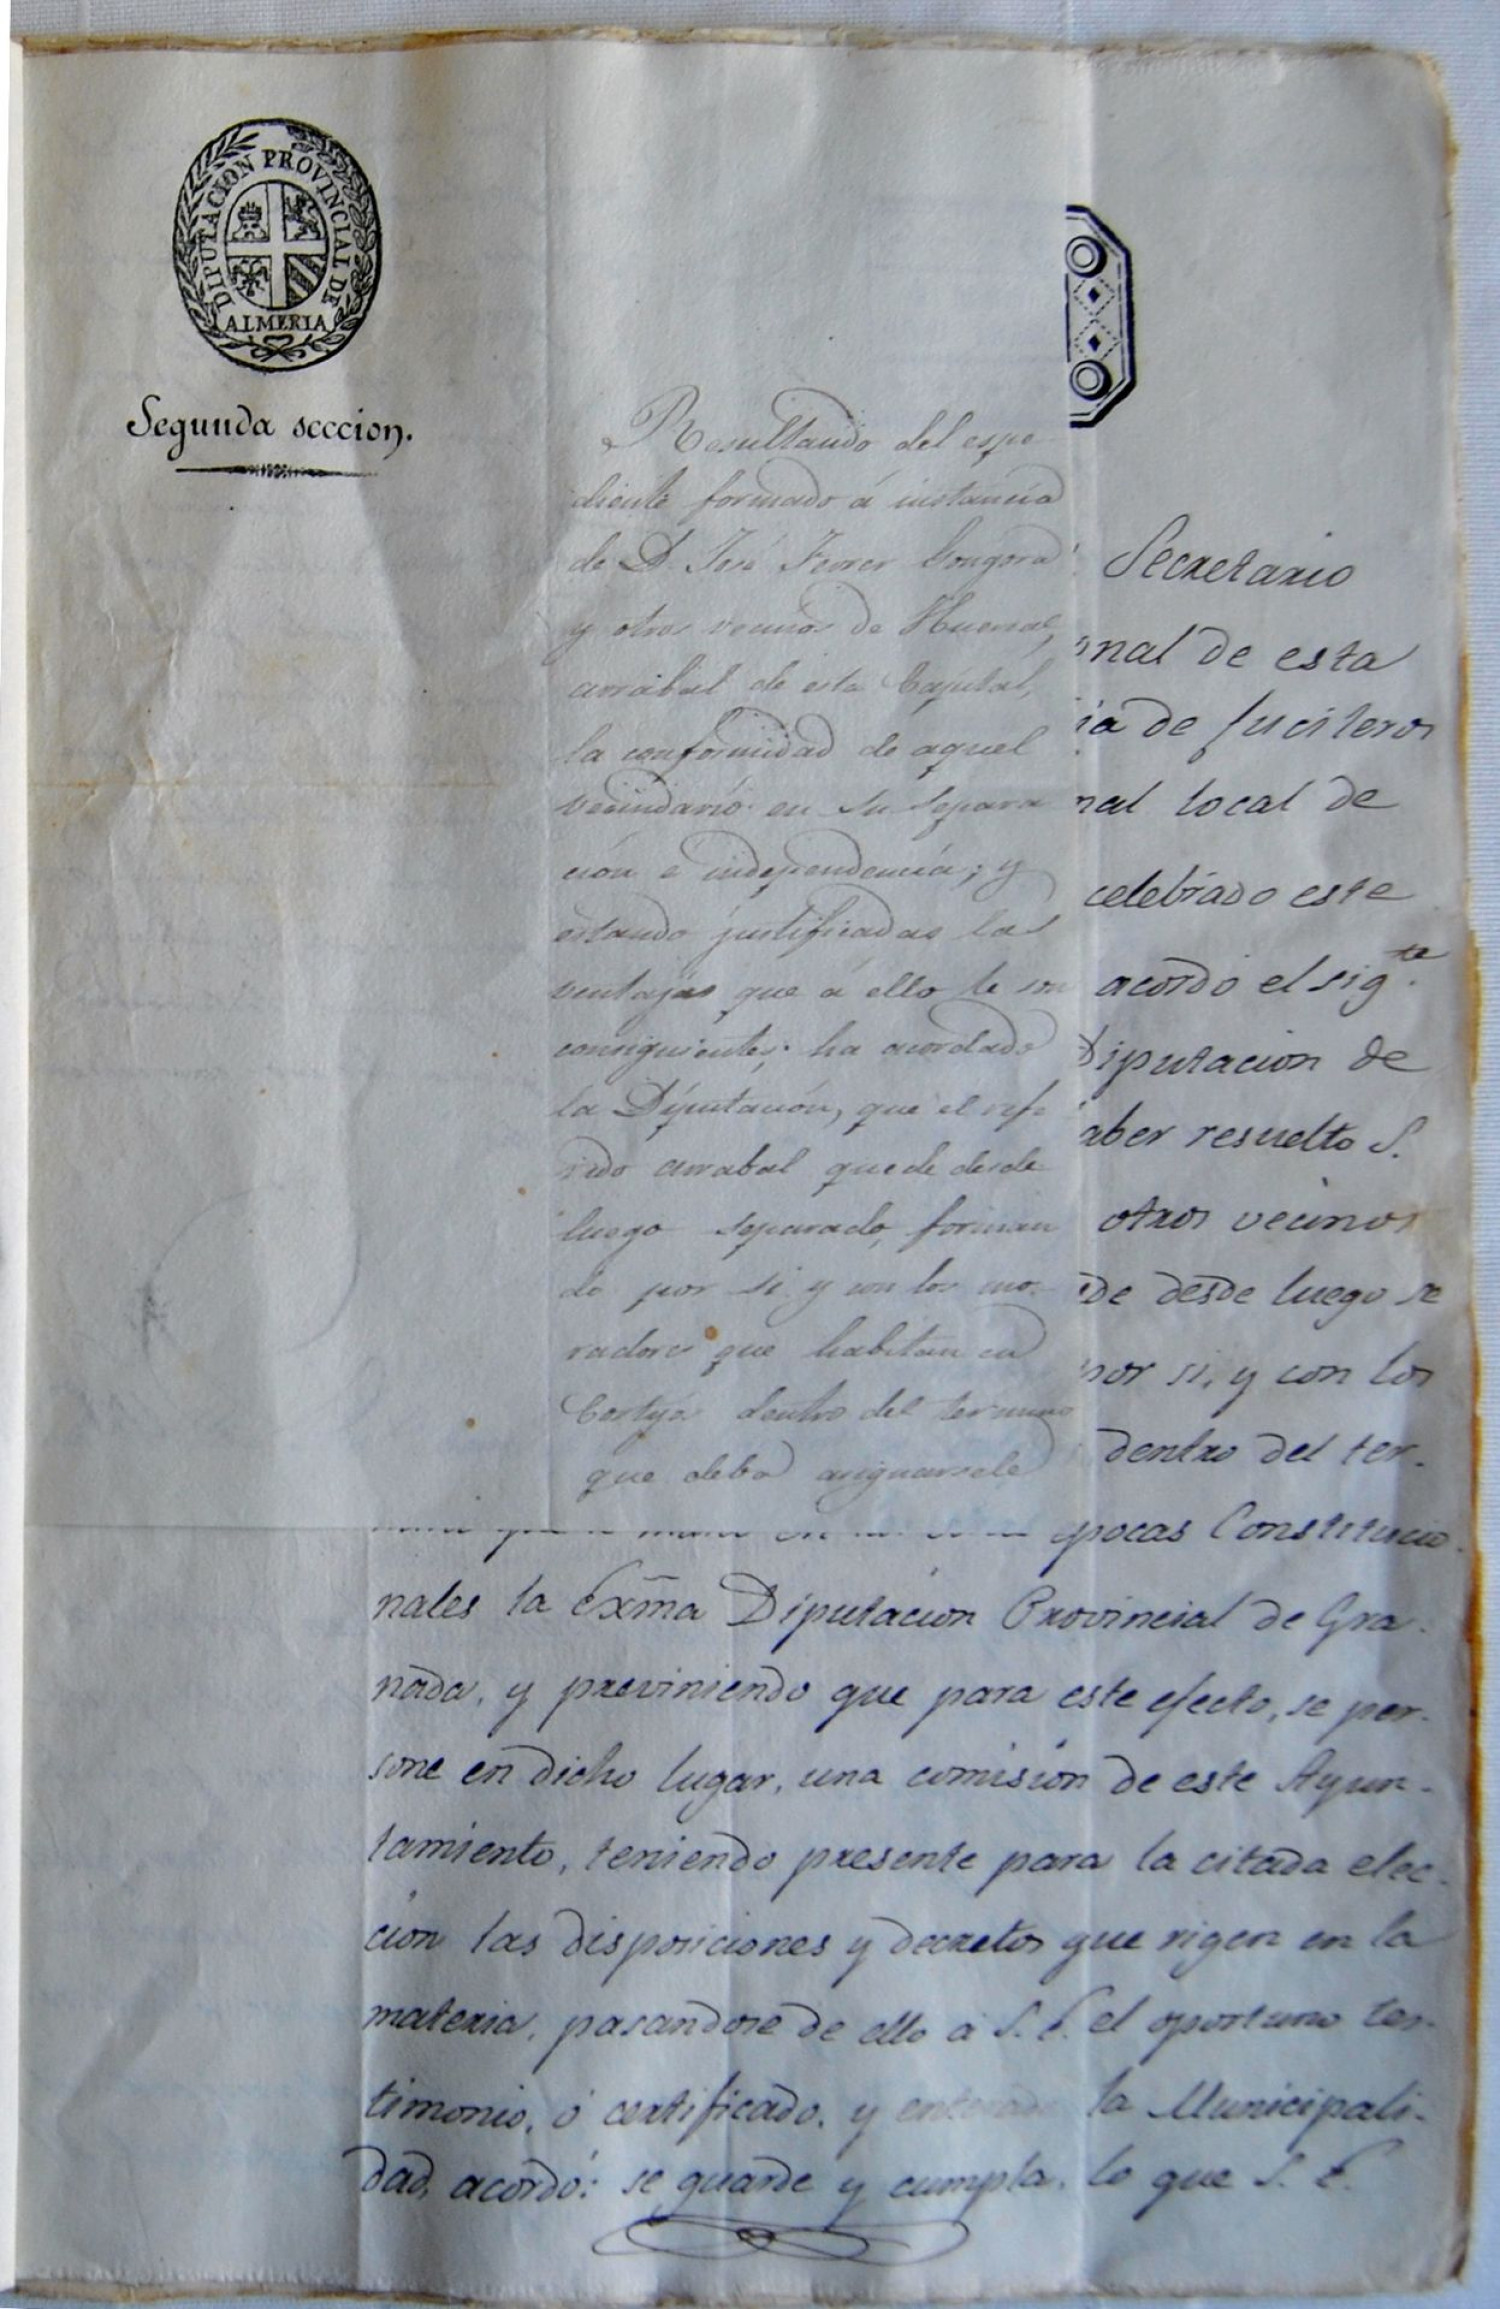 DIPUTACION PROVINCIAL DE
ALMERIA
Segunda seccion.
Resultando del espe
diente formado á instancia
de D. José Ferrer Gongora
y otros vecinos de Huercal,
arrabal de esta Capital,
la conformidad de aquel
vecindario en su separa
ción é independencia; y
estando justificadas las
ventajas que á ello le son
consiguientes; ha acordado
la Diputación, que el refe
rido arrabal quede desde
luego separado, forman
do por si y con los mo-
radores que habitan en
Cortijos dentro del termino
que deba asignarsele
Secretario
nal de esta
ia de fucileros
nal local de
celebrado este
acordó el sigte.
Diputacion de
aber resuelto S.
otros vecinos
de desde luego se
por si, y con los
dentro del ter-
epocas Constitucio-
nales la Exma Diputacion Provincial de Gra-
nada, y previniendo que para este efecto, se per-
sone en dicho lugar, una comision de este Ayun-
tamiento, teniendo presente para la citada elec-
cion las disposiciones y decretos que rigen en la
materia, pasandose de ello á S. E. el oportuno tes-
timonio, ó certificado, y enterada la Municipali-
dad, acordó: se guarde y cumpla, lo que S. E.